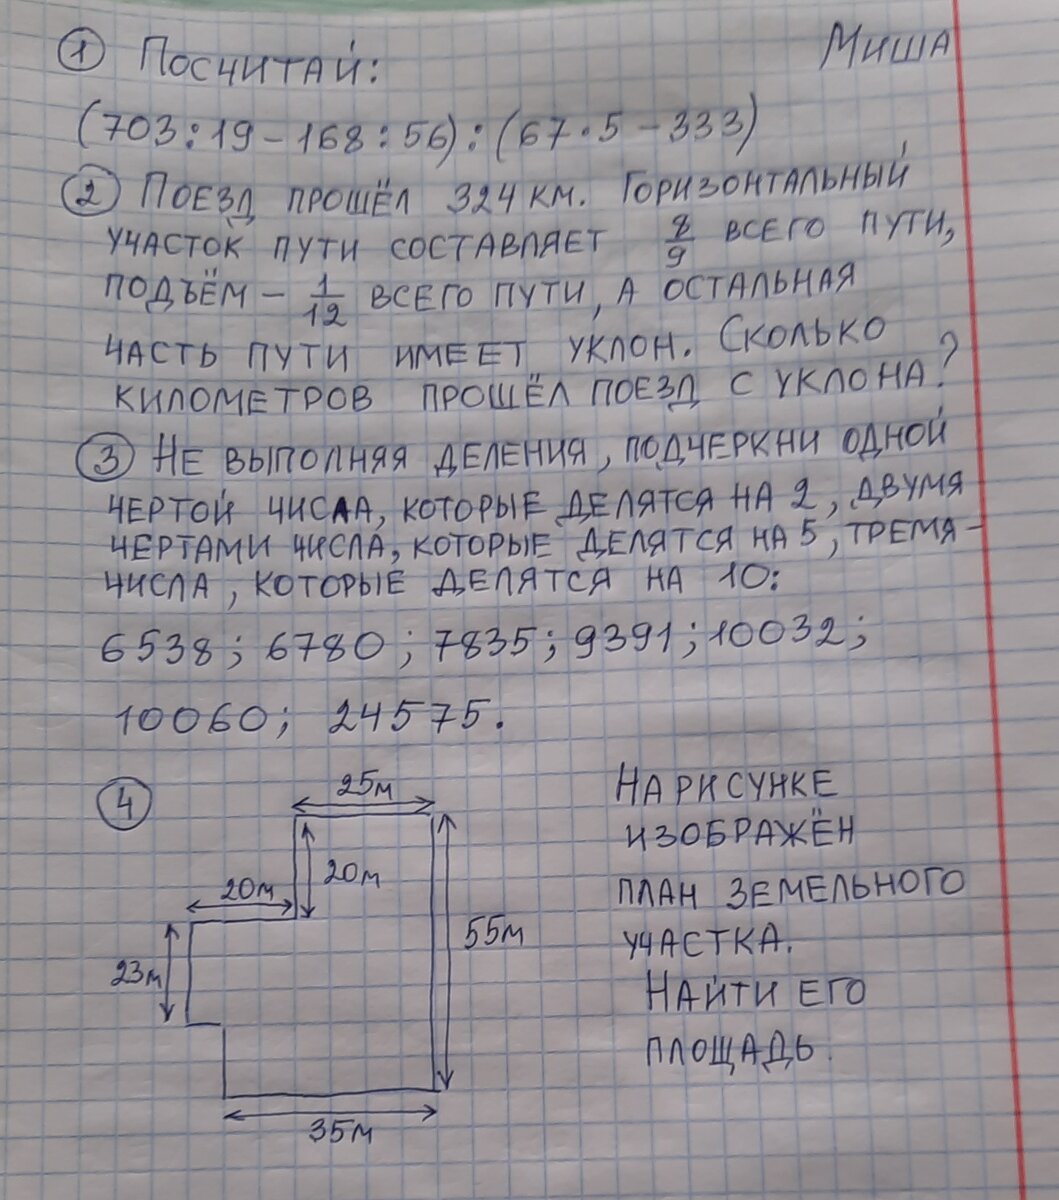 Миша
① Посчитай:
(703:19-168:56):(67·5-333)
② Поезд прошёл 324 км. Горизонтальный
участок пути составляет 8/9 всего пути,
подъём - 1/12 всего пути, а остальная
часть пути имеет уклон. Сколько
километров прошёл поезд с уклона?
③ Не выполняя деления, подчеркни одной
чертой числа, которые делятся на 2, двумя
чертами числа, которые делятся на 5, тремя -
числа, которые делятся на 10:
6538; 6780; 7835; 9391; 10032;
10060; 24575.
④
25м
20м
20м
23м
55м
35м
На рисунке
изображён
план земельного
участка.
Найти его
площадь.